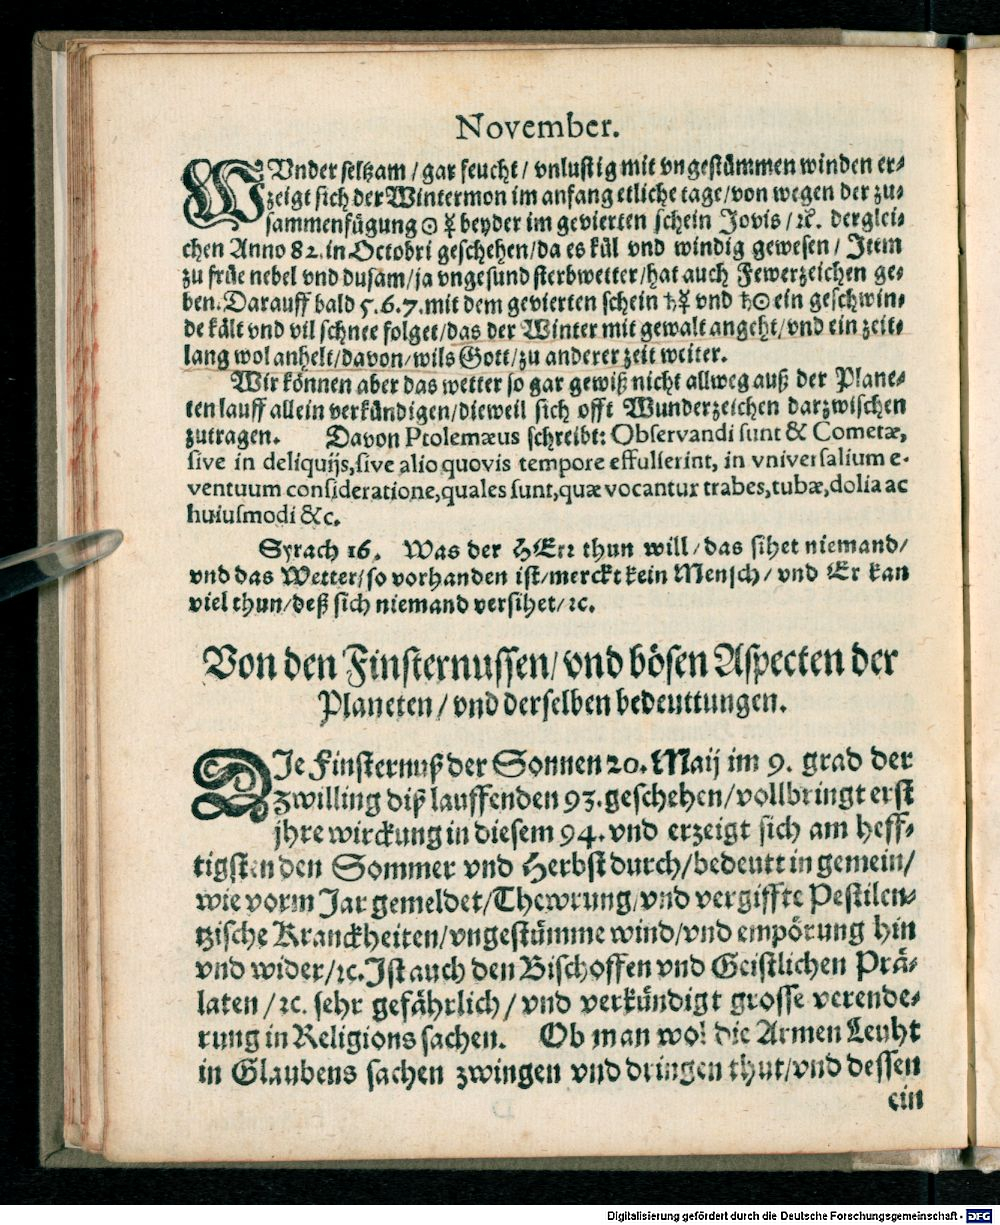 November.
WUnder seltzam / gar feucht / vnlustig mit vngestümmen winden er⸗
zeigt sich der Wintermon im anfang etliche tage / von wegen der zu⸗
sammenfügung ☉ ☿ beyder im gevierten schein Jovis / ꝛc. derglei⸗
chen Anno 82. in Octobri geschehen / da es kül vnd windig gewesen / Item
zu früe nebel vnd dusam / ja vngesund sterbwetter / hat auch Fewerzeichen ge⸗
ben. Darauff bald 5. 6. 7. mit dem gevierten schein ♄ ☿ vnd ♄ ☉ ein geschwin⸗
de kält vnd vil schnee folget / das der Winter mit gewalt angeht / vnd ein zeit⸗
lang wol anhelt / davon / wils Gott / zu anderer zeit weiter.
Wir können aber das wetter so gar gewiß nicht allweg auß der Plane⸗
ten lauff allein verkündigen / dieweil sich offt Wunderzeichen darzwischen
zutragen. Davon Ptolemæus schreibt: Observandi sunt & Cometæ,
sive in deliquijs, sive alio quovis tempore effulserint, in vniversalium e-
ventuum consideratione, quales sunt, quæ vocantur trabes, tubæ, dolia ac
huiusmodi &c.
Syrach 16. Was der HErr thun will / das sihet niemand /
vnd das Wetter / so vorhanden ist / merckt kein Mensch / vnd Er kan
viel thun / deß sich niemand versihet / ꝛc.
Von den Finsternussen / vnd bösen Aspecten der
Planeten / vnd derselben bedeuttungen.
DIe Finsternuß der Sonnen 20. Maij im 9. grad der
Zwilling diß lauffenden 93. geschehen / vollbringt erst
jhre wirckung in diesem 94. vnd erzeigt sich am heff⸗
tigsten den Sommer vnd Herbst durch / bedeutt in gemein /
wie vorm Jar gemeldet / Thewrung / vnd vergiffte Pestilen⸗
tzische Kranckheiten / vngestümme wind / vnd empörung hin
vnd wider / ꝛc. Ist auch den Bischoffen vnd Geistlichen Prä⸗
laten / ꝛc. sehr gefährlich / vnd verkündigt grosse verende⸗
rung in Religions sachen. Ob man wol die Armen Leuht
in Glaubens sachen zwingen vnd dringen thut / vnd dessen
ein
Digitalisierung gefördert durch die Deutsche Forschungsgemeinschaft - DFG